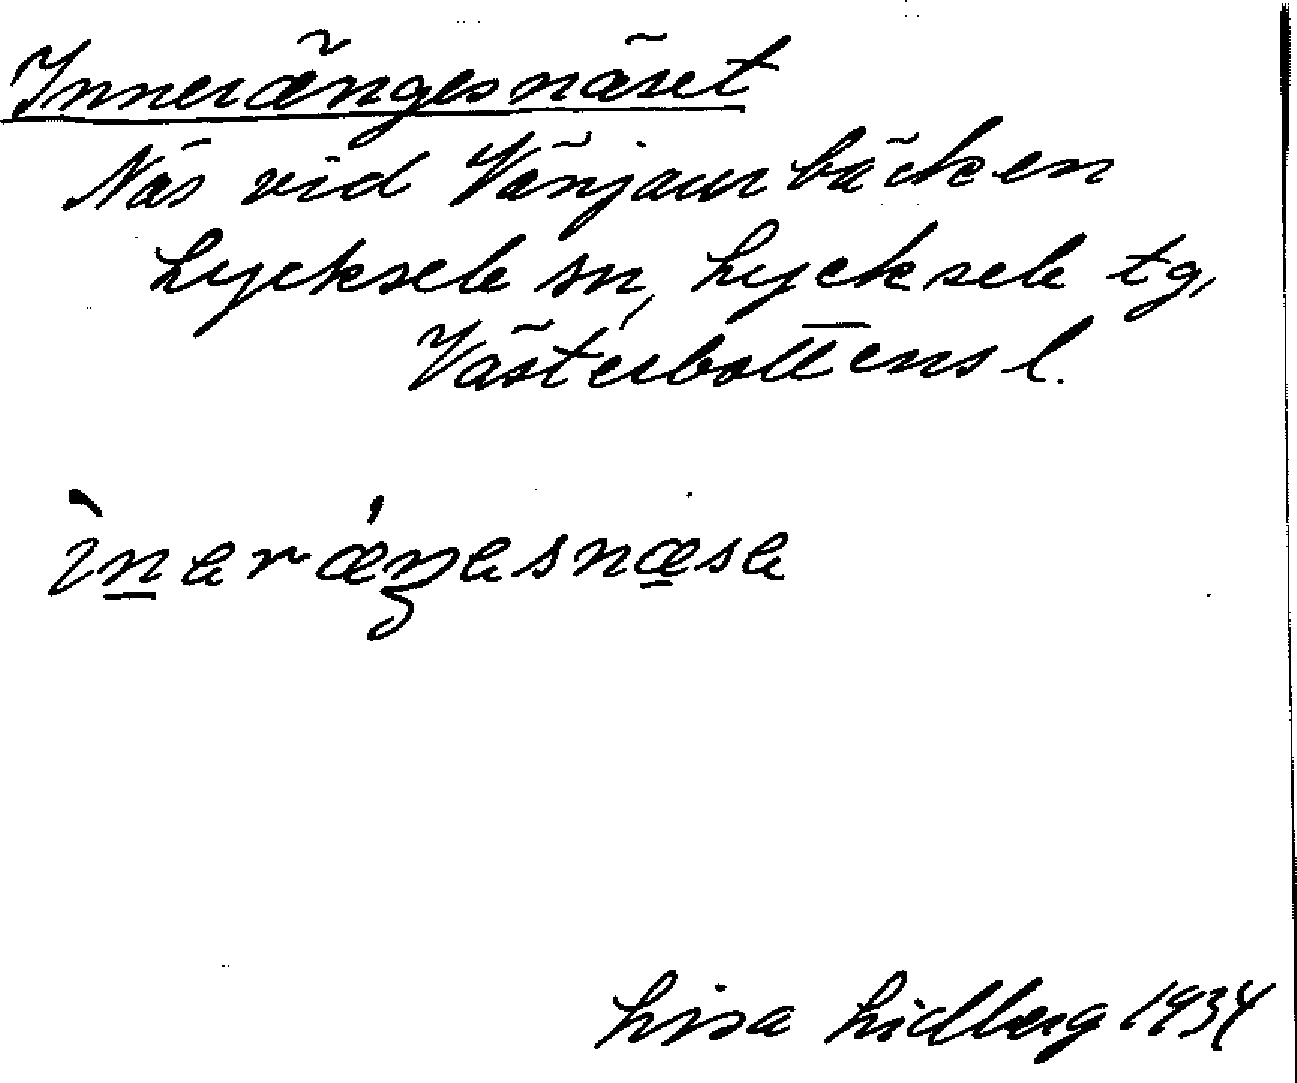 Innerängesnäset
Näs vid Vänjaurbäcken
Lycksele sn, Lycksele tg,
Västerbottens l.
ìn̲eræ´ŋesnæ̲se
Lisa Lidberg 1934